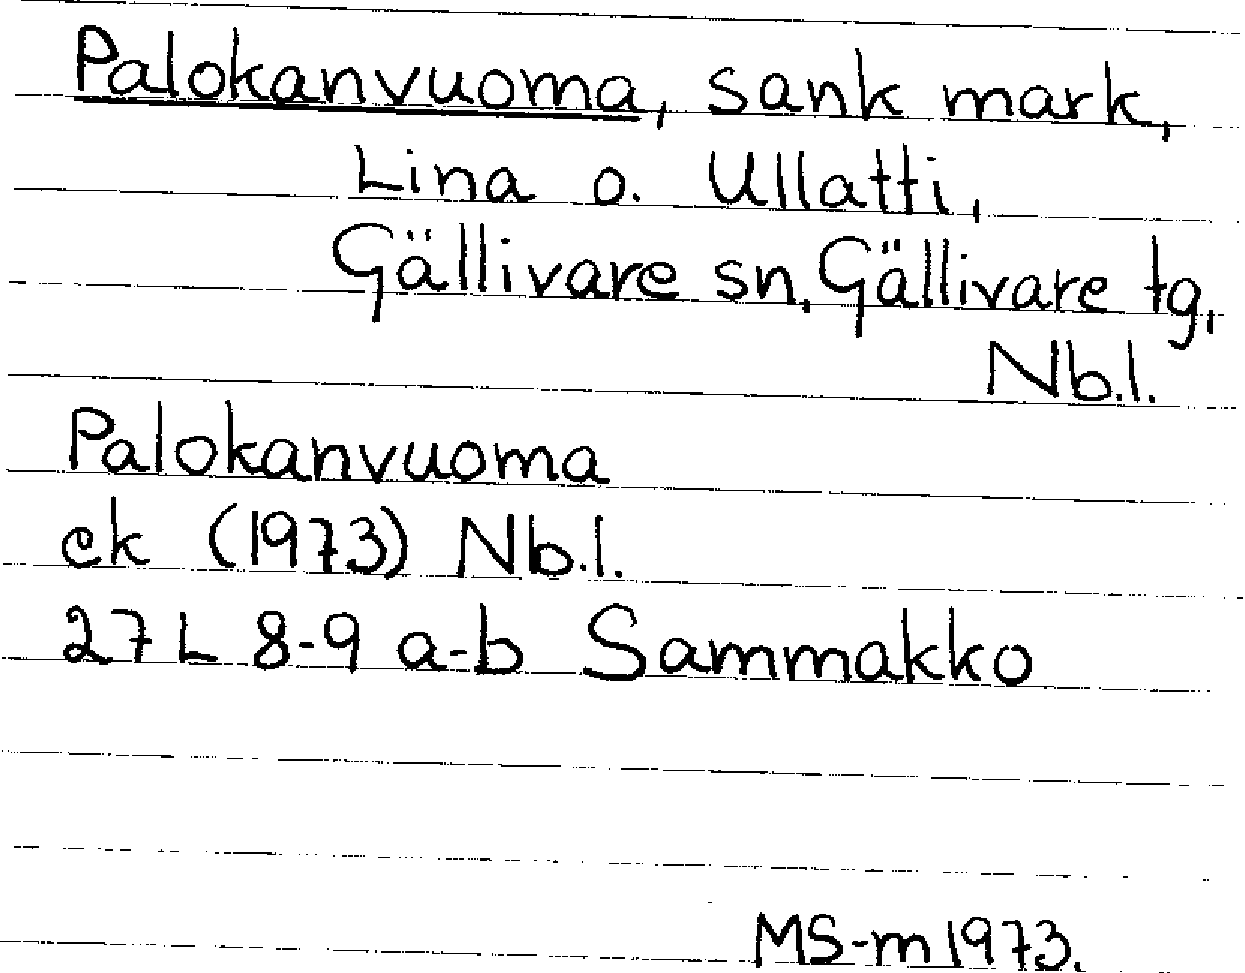 Palokanvuoma, sank mark,
Lina o. Ullatti,
Gällivare sn, Gällivare tg,
Nb.l.
Palokanvuoma
ek (1973) Nb.l.
27 L 8-9 a-b Sammakko
MS-m 1973.